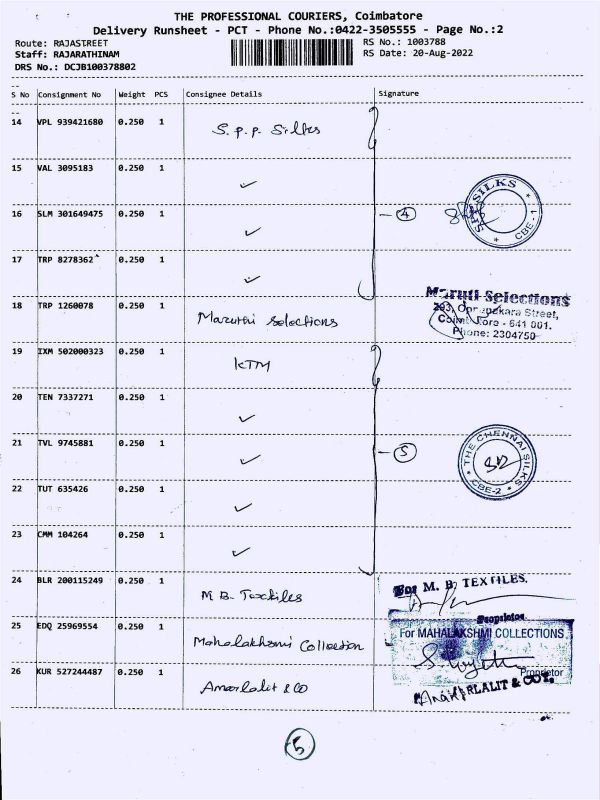 THE PROFESSIONAL COURIERS, Coimbatore
Delivery Runsheet - PCT - Phone No.:0422-3505555 - Page No.:2
Route: RAJASTREET RS No.: 1003788
Staff: RAJARATHINAM RS Date: 20-Aug-2022
DRS No.: DCJB100378802
S No Consignment No Weight PCS Consignee Details Signature
14 VPL 939421680 0.250 1 S.P.P. Silks
15 VAL 3095183 0.250 1 ✓
16 SLM 301649475 0.250 1 ✓ - 4 SILKS CBE-1
17 TRP 8278362 0.250 1 ✓
18 TRP 1260078 0.250 1 Maruthi Selections
Maruti Selections
293, Oppanakara Street,
Coimbatore - 641 001.
Phone: 2304750
19 IXM 502000323 0.250 1 KTM
20 TEN 7337271 0.250 1 ✓
21 TVL 9745881 0.250 1 ✓ - 5 THE CHENNAI SILKS CBE-2
22 TUT 635426 0.250 1 ✓
23 CMM 104264 0.250 1 ✓
24 BLR 200115249 0.250 1 M B- Textiles
For M. B. TEXTILES.
Proprietor
25 EDQ 25969554 0.250 1 Mahalakhsmi Collection
For MAHALAKSHMI COLLECTIONS
Proprietor
26 KUR 527244487 0.250 1 Amarlalit & Co
5